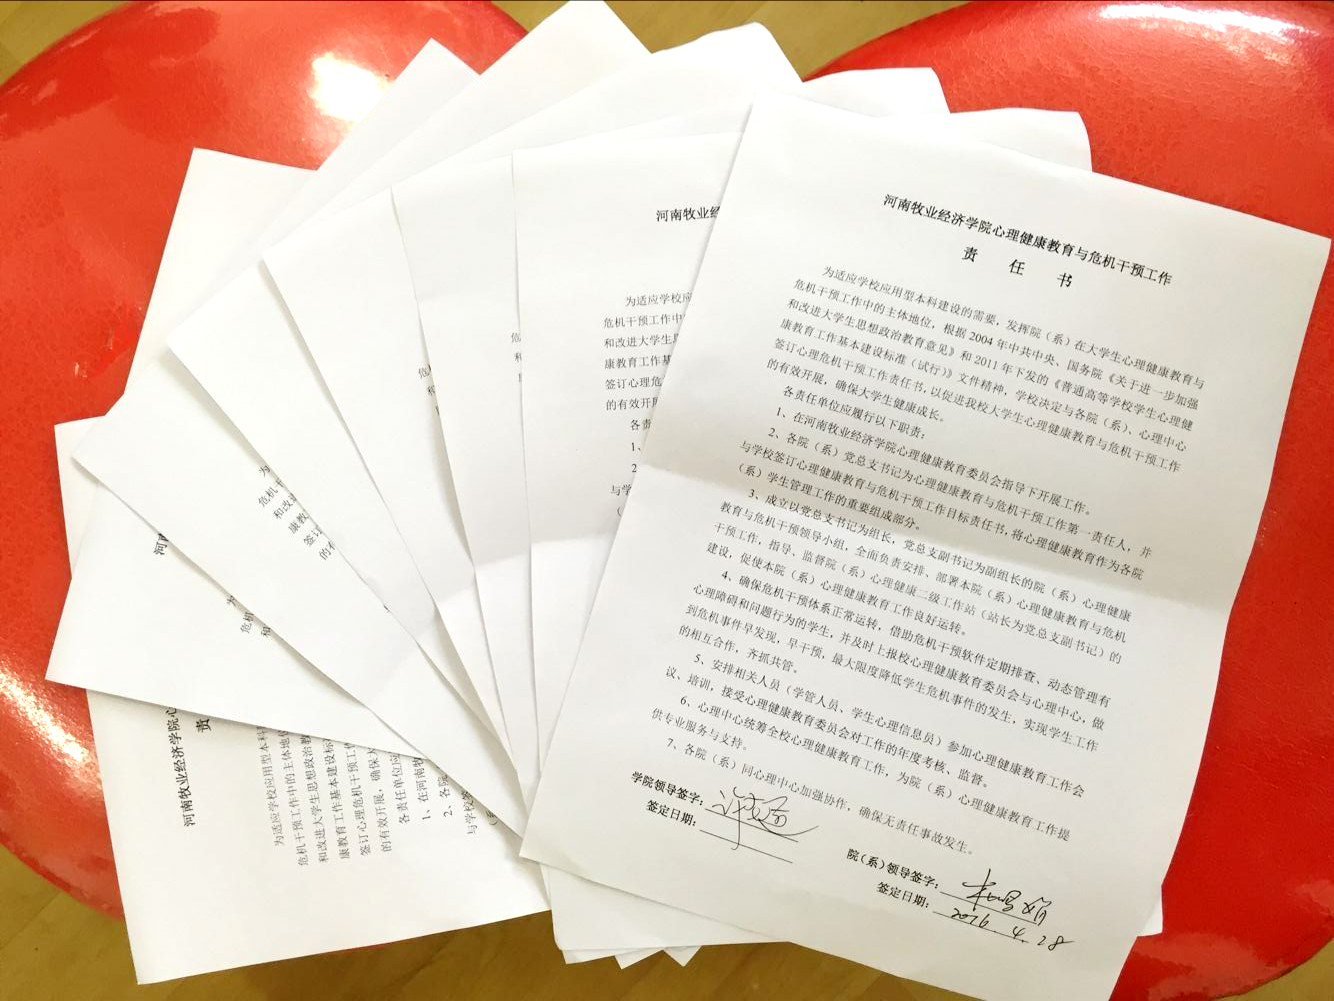 河南牧业经济学院心理健康教育与危机干预工作
责 任 书
为适应学校应用型本科建设的需要，发挥院（系）在大学生心理健康教育与
危机干预工作中的主体地位，根据 2004 年中共中央、国务院《关于进一步加强
和改进大学生思想政治教育意见》和 2011 年下发的《普通高等学校学生心理健
康教育工作基本建设标准（试行）》文件精神，学校决定与各院（系）、心理中心
签订心理危机干预工作责任书，以促进我校大学生心理健康教育与危机干预工作
的有效开展，确保大学生健康成长。
各责任单位应履行以下职责：
1、在河南牧业经济学院心理健康教育委员会指导下开展工作。
2、各院（系）党总支书记为心理健康教育与危机干预工作第一责任人，并
与学校签订心理健康教育与危机干预工作目标责任书，将心理健康教育作为各院
（系）学生管理工作的重要组成部分。
3、成立以党总支书记为组长，党总支副书记为副组长的院（系）心理健康
教育与危机干预领导小组，全面负责安排、部署本院（系）心理健康教育与危机
干预工作，指导、监督院（系）心理健康二级工作站（站长为党总支副书记）的
建设，促使本院（系）心理健康教育工作良好运转。
4、确保危机干预体系正常运转，借助危机干预软件定期排查、动态管理有
心理障碍和问题行为的学生，并及时上报校心理健康教育委员会与心理中心，做
到危机事件早发现，早干预，最大限度降低学生危机事件的发生，实现学生工作
的相互合作，齐抓共管。
5、安排相关人员（学管人员、学生心理信息员）参加心理健康教育工作会
议、培训，接受心理健康教育委员会对工作的年度考核、监督。
6、心理中心统筹全校心理健康教育工作，为院（系）心理健康教育工作提
供专业服务与支持。
7、各院（系）同心理中心加强协作，确保无责任事故发生。
学院领导签字：
签定日期：
院（系）领导签字：
签定日期：2016.4.28
河南牧业经
为适应学校应
危机干预工作中
和改进大学生思
康教育工作基
签订心理危
的有效开展
各责
1、
2
与学
（
危
和
为
危机干
和改进
康教
签订
的有
为
危机
和
河南
河南牧业经济学院心
责
为适应学校应用型本科
危机干预工作中的主体地位
和改进大学生思想政治教
康教育工作基本建设标
签订心理危机干预工作
的有效开展，确保大
各责任单位应
1、在河南牧
2、各院
与学校签